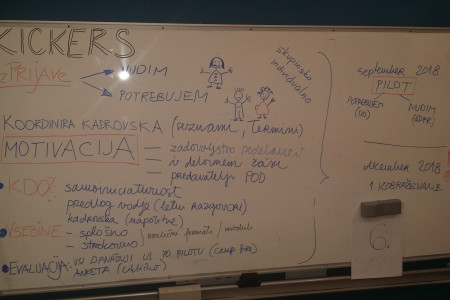 KICKERS
PRIJAVE
NUDIM
POTREBUJEM
skupinsko
individualno
KOORDINIRA KADROVSKA (seznami, termini)
MOTIVACIJA = zadovoljstvo
= v delovnem času
= predavatelji POD
• KDO? samoiniciativnost
predlog vodje (letni razgovori)
kadrovska (napotitve)
• VSEBINE - splošno
- strokovno
• EVALUACIJA: PO PILOTU
ANKETA
september 2018
PILOT
POTREBUJEM
NUDIM
december 2018
1. IZOBRAŽEVANJE
6.